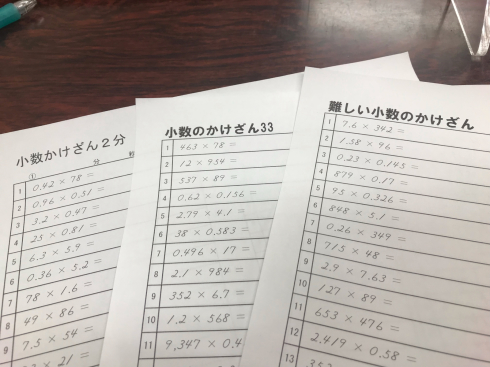 小数かけざん2分
① 分 秒
1 0.42 × 78 =
2 0.96 × 0.51 =
3 3.2 × 0.47 =
4 25 × 0.81 =
5 6.3 × 5.9 =
6 0.36 × 5.2 =
7 78 × 1.6 =
8 49 × 86 =
9 7.5 × 54 =
× 21 =
小数のかけざん33
1 463 × 78 =
2 12 × 954 =
3 537 × 89 =
4 0.62 × 0.156 =
5 2.79 × 4.1 =
6 38 × 0.583 =
7 0.496 × 17 =
8 2.1 × 984 =
9 352 × 6.7 =
10 1.2 × 568 =
11 9,347 × 0.4
難しい小数のかけざん
1 7.6 × 342 =
2 1.58 × 96 =
3 0.23 × 0.145 =
4 879 × 0.17 =
5 95 × 0.326 =
6 848 × 5.1 =
7 0.26 × 349 =
8 715 × 48 =
9 2.9 × 7.63 =
10 127 × 89 =
11 653 × 476 =
12 2.419 × 0.58 =
13